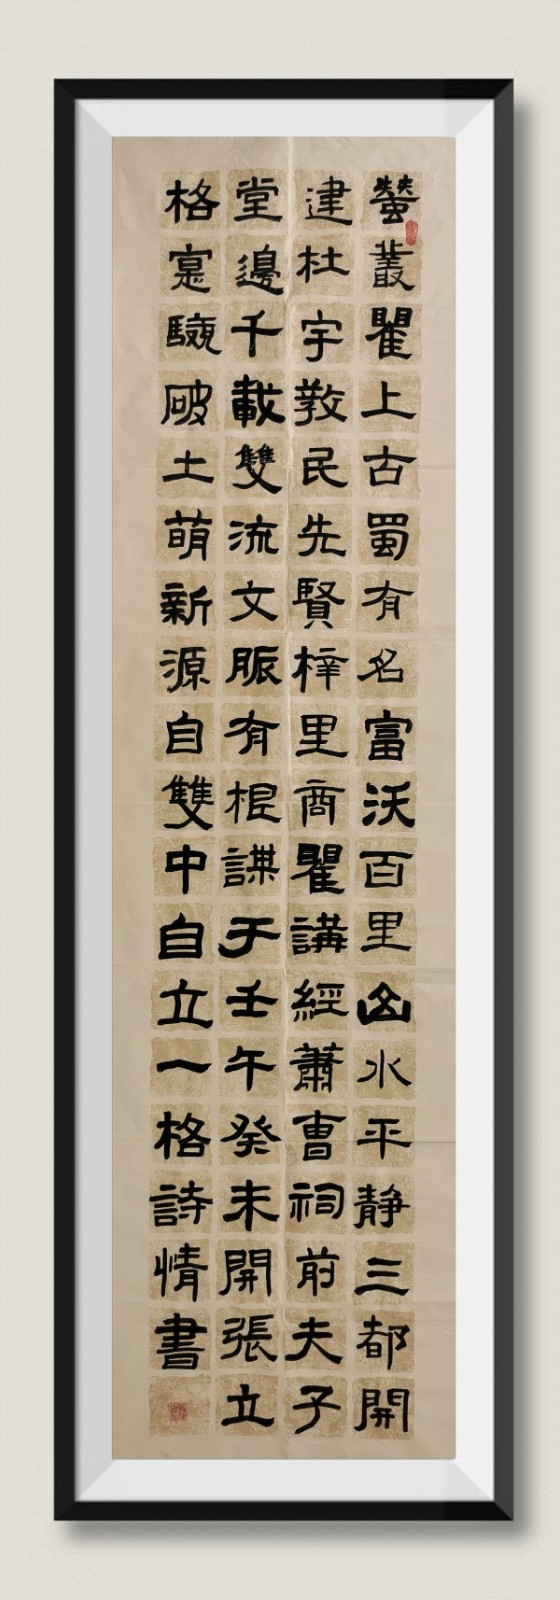 蠶叢瞿上古蜀有名富沃百里山水平静三都開
建杜宇教民先賢梓里商瞿講經蕭曹祠前夫子
堂邊千載雙流文脈有根謀于壬午癸未開張立
格寔驗破土萌新源自雙中自立一格詩情書